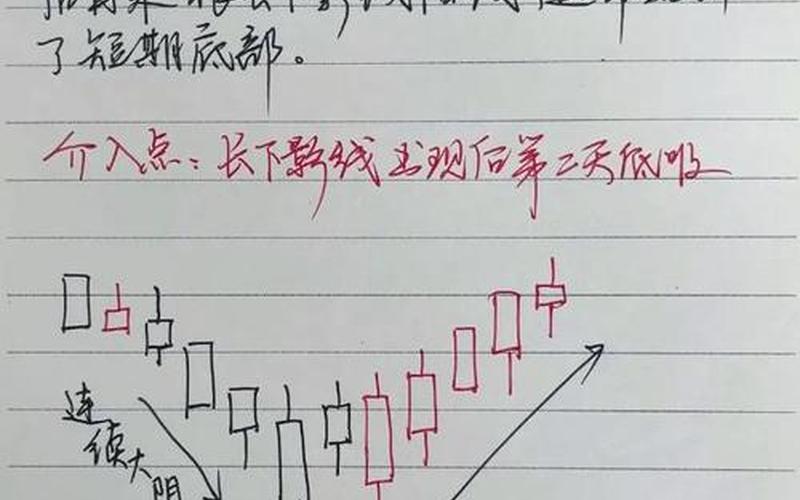 了短期底部。
介入点：长下影线出现后第二天低吸
连续大阴